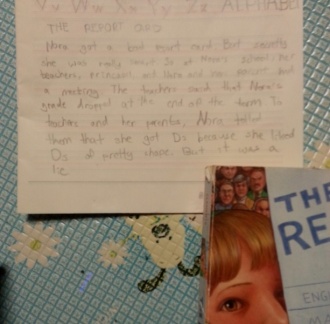 Vv Ww Xx Yy Zz ALPHABE
THE REPORT CARD
Nora got a bad report card. But secretly
she was really smart. So at Nora's school, her
teachers, principal, and Nora and her parents had
a meeting. The teachers said that Nora's
grade dropped at the end of the term. To
teachers and her parents, Nora told
them that she got Ds because she liked
Ds pretty shape. But it was a
lie.
THE
RE
ENG